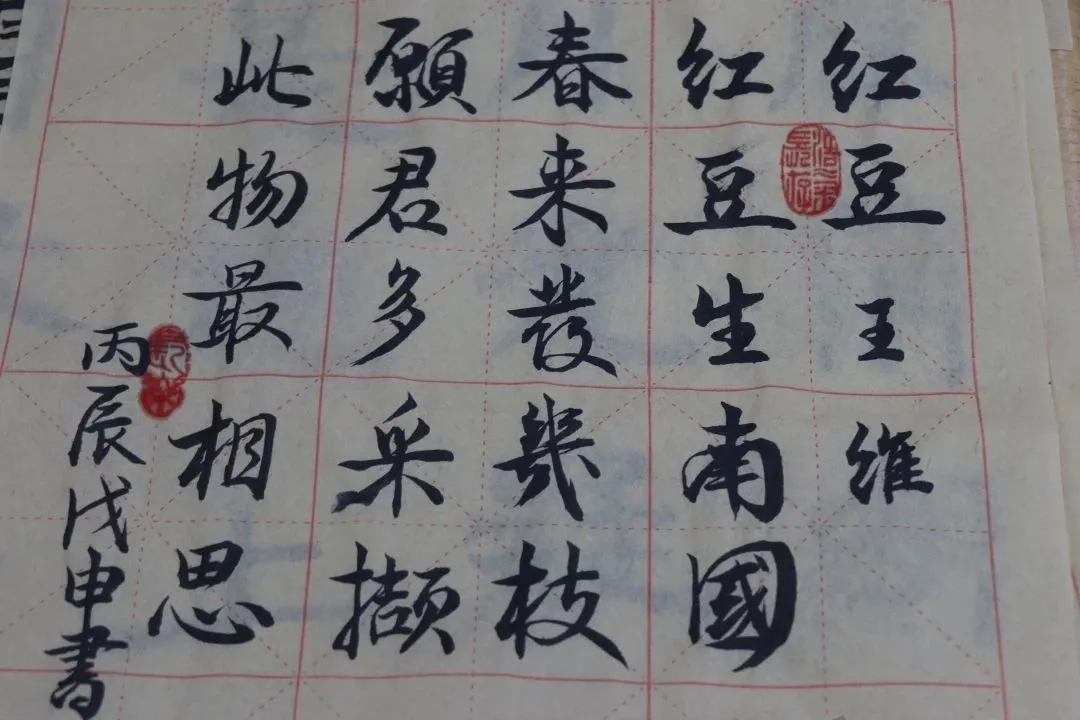 红豆王维
红豆生南國
春来發幾枝
願君多采擷
此物最相思
丙辰戊申書